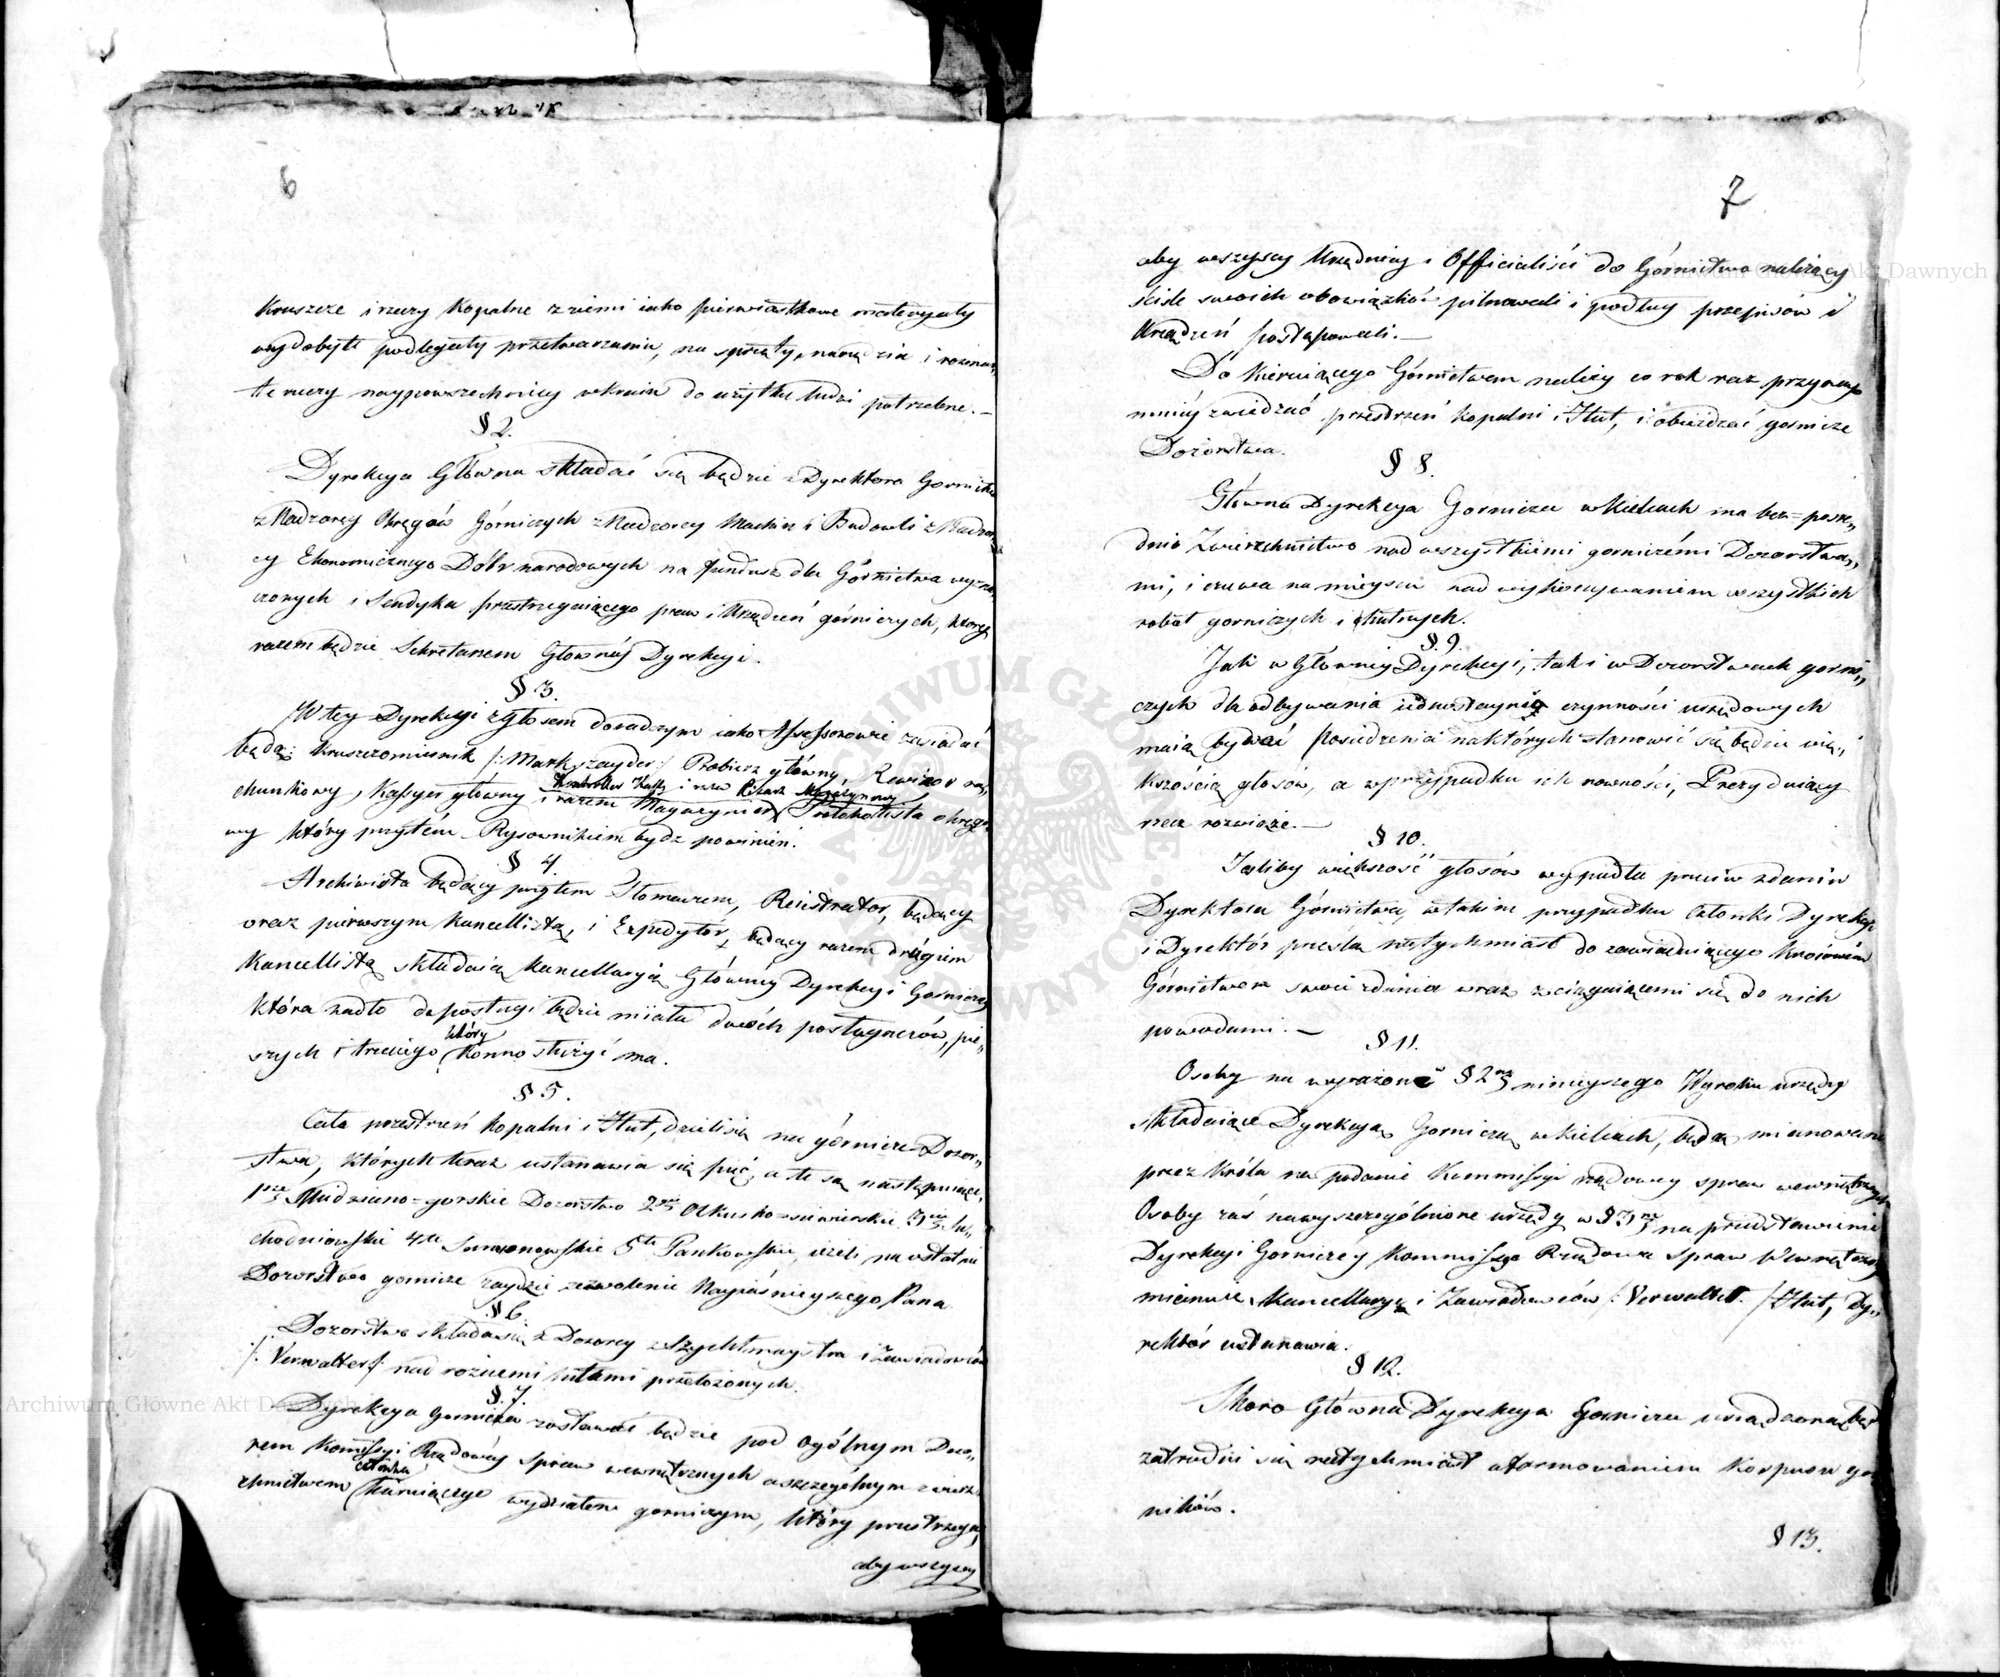 6
Kruszce i rzeczy kopalne z ziemi iako pierwiastkowe materyały
wydobyte podlegały przetwarzaniu, na sprzęty, narzędzia i rozma„
te rzeczy naypowszechniey w kraiu do użytku ludzi potrzebne. —
§ 2.
Dyrekcya Główna składać się będzie z Dyrektora Gornictwa
z Nadzorcy Okręgów Górniczych z Nadzorcy Machin i Budowli z Nadzor
cy Ekonomicznego Dóbr narodowych na fundusz dla Górnictwa wyzna
czonych i Sendyka przestrzegaiącego praw i Urządzeń górniczych, który
razem będzie Sekretarzem Głównéy Dyrekcyi.
§ 3.
W tey Dyrekcyi z głosem doradczym iako Assessorowie zasiadać
będą: kruszcomiernik /: Markszayder :/ Probierz główny, Rewizor ra„
chunkowy, Kassyer główny i razem Magazynier, Protokollista okręgo
Kontroller Kassy i Pisarz Magazynowy
wy który przytém Rysownikiem bydz powinien.
§ 4.
Archiwista będący przytem Tłomaczem, Reiestrator, będący
oraz pierwszym Kancellistą, i Expedytor, będący razem drugim
Kancellistą składaią Kancellaryią Głównéy Dyrekcyi Gorniczey
która nadto do posługi będzie miała dwóch posługaczów, pie„
szych i trzeciego który konno służyć ma.
§ 5.
Cała przestrzeń kopalni i Hut, dzieli się na górnicze Dozor„
stwa, których teraz ustanawia się pięć, a te są następuiące,
1sze Miedziano-gorskie Dozorstwo 2gie Olkusko-siewierskie 3cie Su„
chedniowskie 4te Samsonowskie 5te Pankowskie, ieżeli na ostatnie
Dozorstwo gornicze zaydzie zezwolenie Nayiaśnieyszego Pana
§ 6.
Dozorstwo składa się z Dozorcy z Szychtmaystra i Zawiadowców
/: Verwalter :/ nad roznemi hutami przełożonych.
§ 7.
Dyrekcya Gornicza zostawać będzie pod ogólnym Dozo„
rem Kommissyi Rządowéy Spraw wewnętrznych a szczególnym zwierz„
chnictwem członka kieruiącego wydziałem gorniczym, który przestrzega,
aby wszyscy
7
aby wszyscy Urzędnicy i Officialiści do Górnictwa należący
ściśle swoich obowiązków pilnowali i podług przepisów i
Urządzeń postępowali. —
Do kieruiącego Górnictwem należy co rok raz przynay„
mniéy zwiedzać przestrzeń kopalni i Hut, i obieżdzać gornicze
Dozorstwa.
§ 8.
Główna Dyrekcya Gornicza w Kielcach ma bez-posre„
dnio Zwierzchnictwo nad wszystkiemi gorniczémi Dozorstwa„
mi, i czuwa na mieyscu nad wykonywaniem wszystkich
robót gorniczych i hutnych.
§. 9.
Jak w Głównéy Dyrekcyi, tak i w Dozorstwach gorni„
czych dla odbywania iednostaynie czynności urzędowych
maią bywać posiedzenia na których stanowić się będzie wię„
kszością głosów, a w przypadku ich rowności, Prezyduiący
rzecz rozwiąże. —
§ 10.
Jeśliby większość głosów wypadła przeciw zdaniu
Dyrektora Górnictwa, w takim przypadku Członki Dyrekcyi
i Dyrektór prześlą natychmiast do zawiaduiącego kraiowém
Górnictwem swoie zdania wraz z ściągaiącemi się do nich
powodami. —
§ 11.
Osoby na wyrażone § 2m ninieyszego Wyroku urzędy
składaiące Dyrekcyą Gorniczą w Kielcach, będą mianowane
przez Króla na podanie Kommissyi rządowey spraw wewnętrznych
Osoby zaś na wyszczególnione urzędy w § 3m na przedstawienie
Dyrekcyi Gorniczey Kommissya Rządowa Spraw Wewnętrznych
mianuie, Kancellaryą i Zawiadowców /: Verwalter :/ Hut, Dy„
rektór ustanawia.
§ 12.
Skoro Główna Dyrekcya Gornicza urządzona będzie
zatrudni się natychmiast uformowaniem Korpusu gor
ników.
§ 13.
Archiwum Główne Akt Dawnych
Archiwum Główne Akt Dawnych